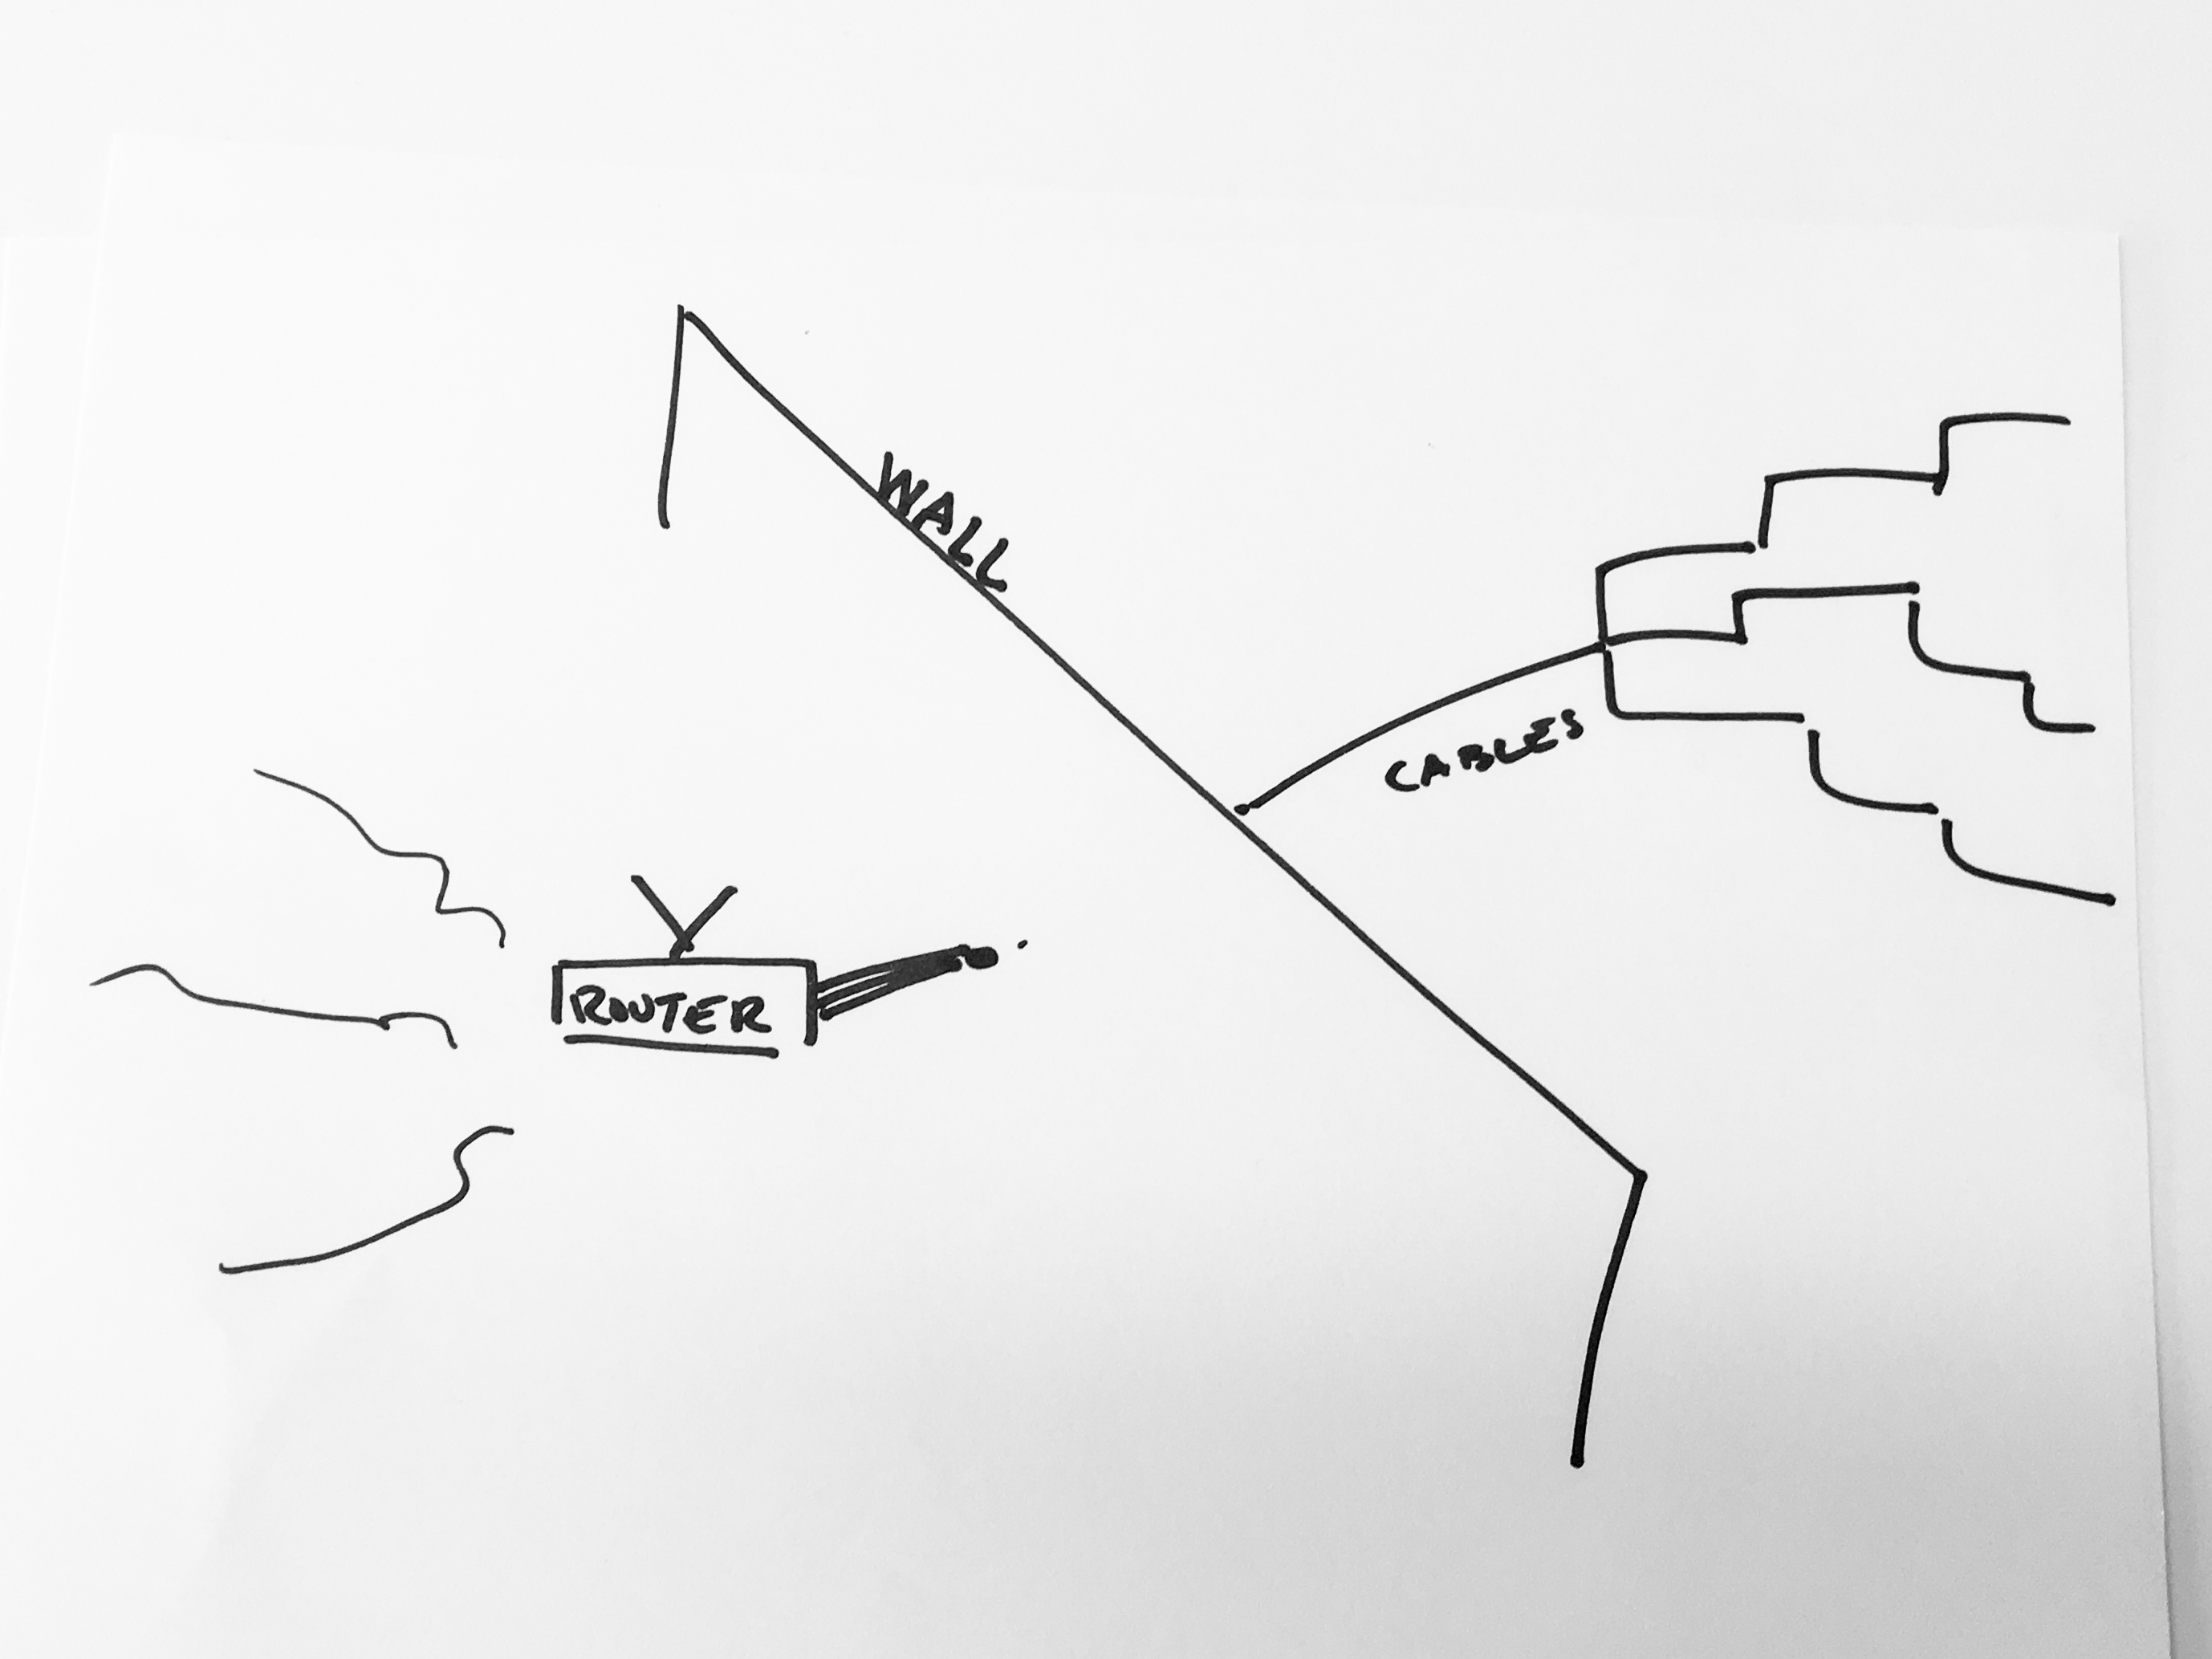 WALL
CABLES
ROUTER